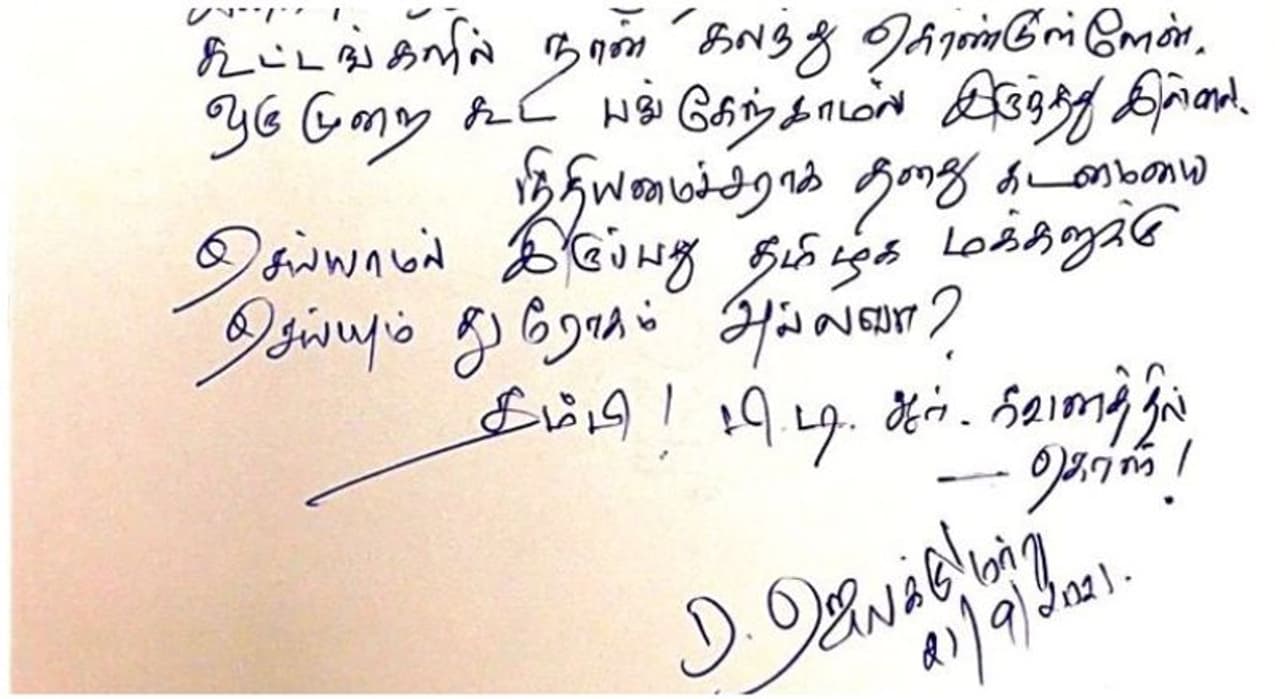 கூட்டங்களில் நான் கலந்து கொண்டுள்ளேன்.
ஒரு முறை கூட பங்கேற்காமல் இருந்தது இல்லை.
நிதியமைச்சராக தனது கடமையை
செய்யாமல் இருப்பது தமிழக மக்களுக்கு
செய்யும் துரோகம் அல்லவா?
தம்பி! பி.டி. ஆர். கவனத்தில்
— கொள்!
D. ஜெயக்குமார்
21/9/2021.